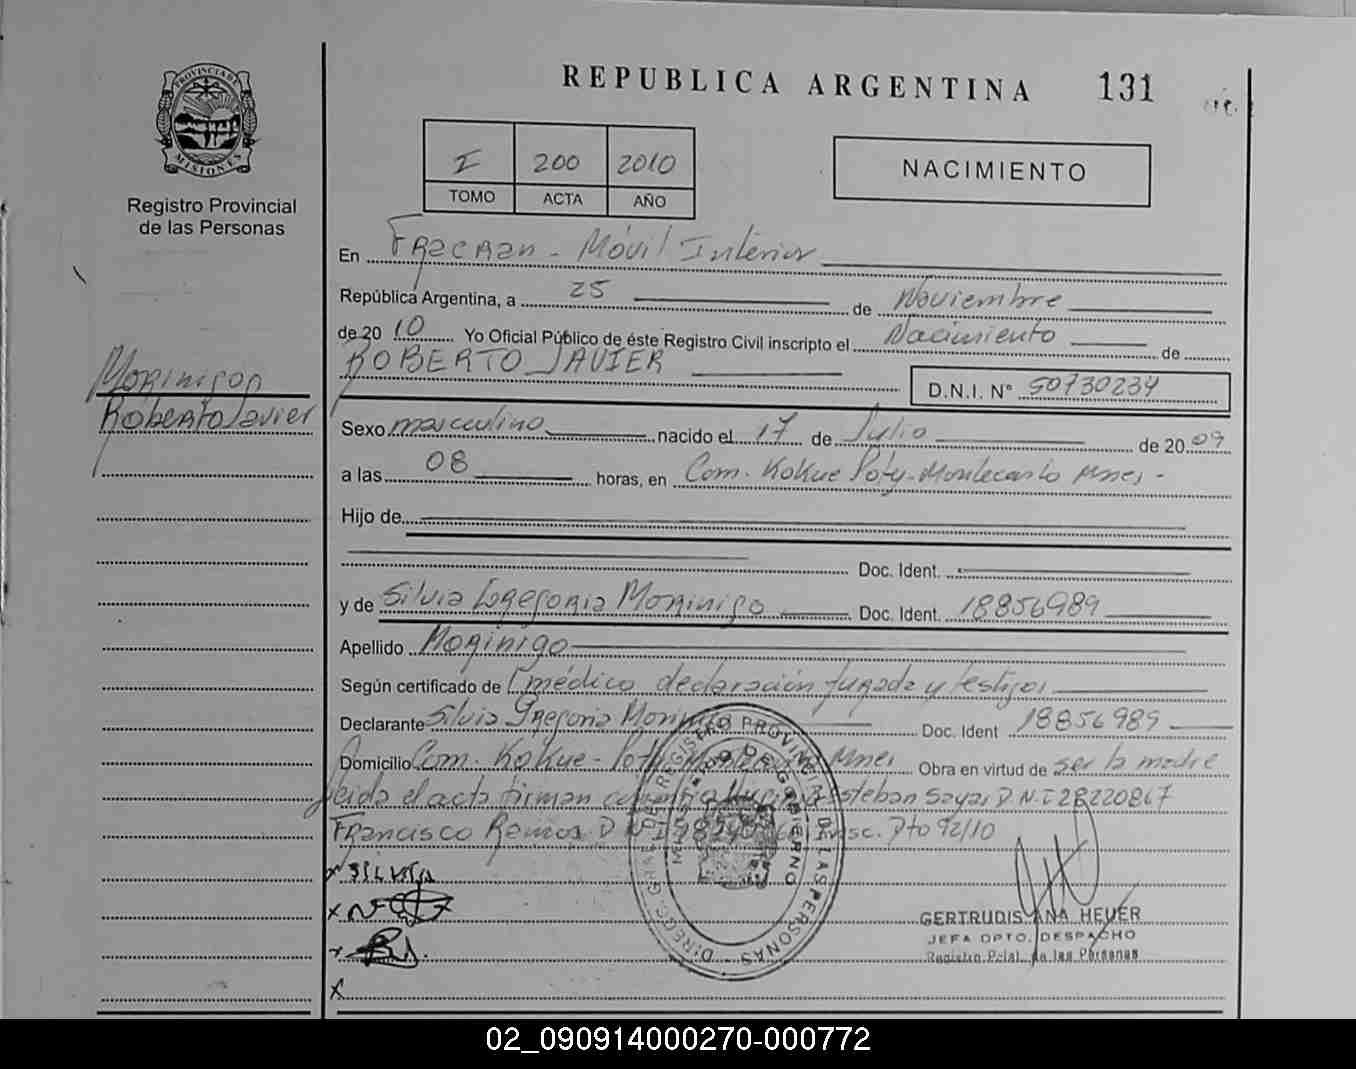 REPUBLICA ARGENTINA 131
PROVINCIA DE MISIONES
Registro Provincial
de las Personas
I 200 2010
TOMO ACTA AÑO
NACIMIENTO
En Fracran - Móvil Interior
República Argentina, a 25 de Noviembre
de 2010 Yo Oficial Público de éste Registro Civil inscripto el Nacimiento de
ROBERTO JAVIER D.N.I. N° 50730234
Morinigo
Roberto Javier
Sexo masculino nacido el 17 de Julio de 2009
a las 08 horas, en Com. Kokue Poty - Montecarlo Mnes -
Hijo de
Doc. Ident.
y de Silvia Gregoria Morinigo Doc. Ident. 18856989
Apellido Morinigo
Según certificado de médico declaración jurada y testigos
Declarante Silvia Gregoria Morinigo Doc. Ident 18856989
Domicilio Com. Kokue - Poty Mnes Obra en virtud de ser la madre
leida el acta firman Esteban Sayas D.N.I 28220867
Francisco Ramos D.N.I Insc. Dto 92/10
x SILVIA
x
x
x
DIRECC. GRAL. DE REGISTRO PROVINCIAL DE LAS PERSONAS
GOBIERNO
GERTRUDIS ANA HEUER
JEFA DPTO. DESPACHO
Registro Pcial. de las Personas
02_090914000270-000772